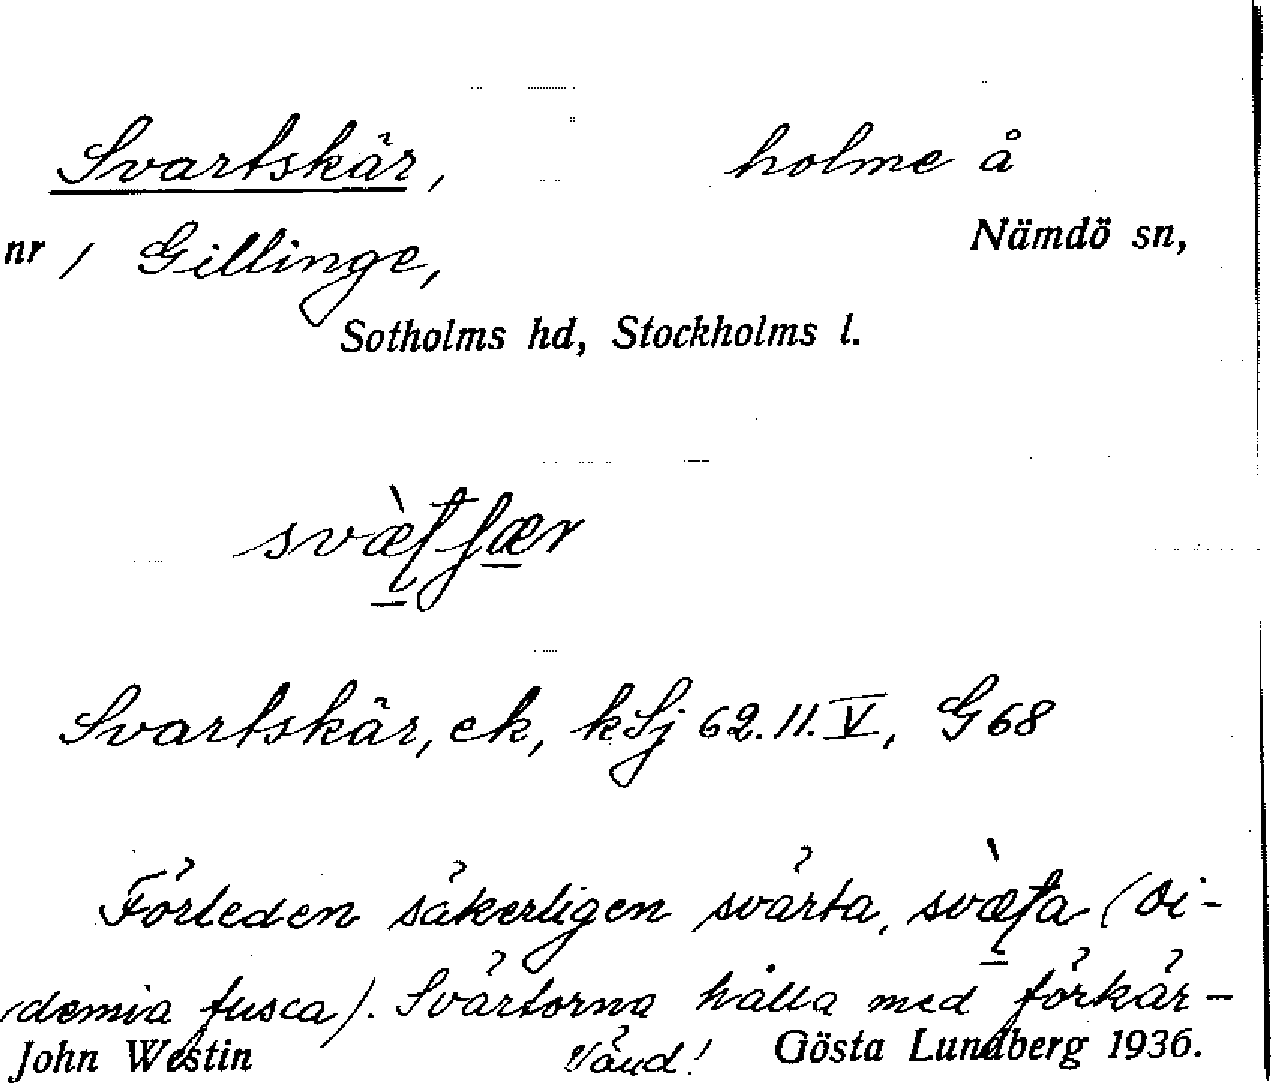 Svartskär, holme å
nr 1 Gillinge, Nämdö sn,
Sotholms hd, Stockholms l.
Svartskär, ek, kSj 62.11.V, G68
Förleden säkerligen svärta, (Oi-
demia fusca). Svärtorna hålla med förkär-
John Westin Vänd! Gösta Lundberg 1936.